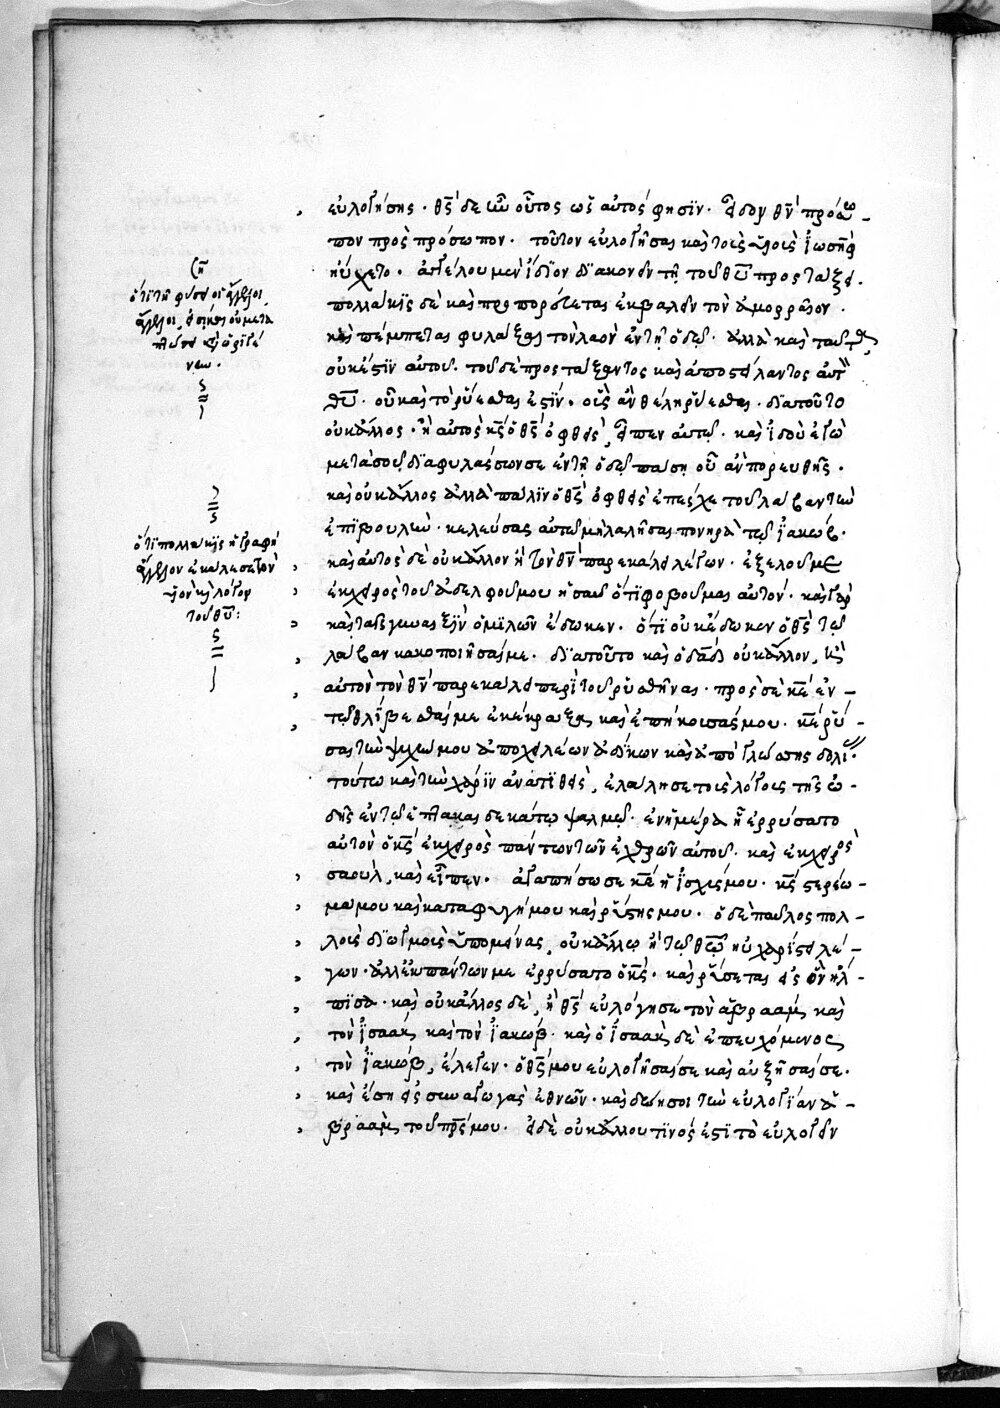 εὐλογήσῃς. θς δε ὢν οὗτος ὡς αὐτός φησϊν. εἶδον θν πρόσω-
πον πρὸς πρόσωπον. τοῦτον εὐλογῆσαι καὶ τοὺς υἱοὺς ϊωσὴφ
ηὔχετο. ἀγγέλου μὲν ἴδϊον διακονεῖν τῇ τοῦ θυ προστάξει.
πολλάκϊς δὲ καὶ προπορεύεται ἐκβαλεῖν τὸν ἀμορραῖον.
καὶ πέμπεται φυλάξαι τὸν λαὸν ἐν τῇ ὁδῷ. ἀλλὰ καὶ ταῦτα
οὐκ ἔστϊν αὐτοῦ. τοῦ δὲ προστάξαντος καὶ ἀποστείλαντος αὐτὸν
θυ. οὗ καὶ τὸ ρύεσθαι ἐστϊν. οὓς ἂν θέλῃ ρύεσθαι. διὰ τοῦτο
οὐκ ἄλλος. ἢ αὐτὸς κς ὁ θς ὀφθεὶς, εἶπεν αὐτῷ. καὶ ϊδοὺ ἐγὼ
μετὰ σοῦ διαφυλάσσων σε ἐν τῇ ὁδῷ πάσῃ οὗ ἂν πορευθῇς.
καὶ οὐκ ἄλλος ἀλλὰ πάλϊν ὁ θς ὀφθεὶς ἐπέσχε τοῦ λάβαν τὴν
ἐπϊβουλὴν. κελεύσας αὐτῷ μὴ λαλῆσαι πονηρὰ τῷ ϊακώβ.
καὶ αὐτὸς δὲ οὐκ ἄλλον ἢ τὸν θν παρεκάλει λέγων. ἐξελοῦ με
ἐκ χειρὸς τοῦ ἀδελφοῦ μου ἡσαῦ ὅτι φοβοῦμαι αὐτόν. καὶ γὰρ
καὶ ταῖς γυναιξὶν ὁμιλῶν ἔδωκεν. ὅτϊ οὐκ ἔδωκεν ὁ θς τῷ
λάβαν κακοποιῆσαί με. διὰ τοῦτο καὶ ὁ δαδ οὐκ ἄλλον, ἢ
αὐτὸν τὸν θν παρεκάλει περὶ τοῦ ρυσθῆναι. πρὸς σὲ κε ἐν
τῷ θλίβεσθαί με ἐκέκραξα καὶ ἐπήκουσάς μου. κε ρῦ-
σαι τὴν ψυχήν μου ἀπὸ χειλέων ἀδίκων καὶ ἀπὸ γλώσσης δολί
τούτῳ καὶ τὴν χάρϊν ἀνατϊθεὶς, ἐλάλησε τοὺς λόγους τῆς ὠ-
δῆς ἐν τῷ ἑπτακαιδεκάτῳ ψαλμῷ. ἐν ἡμέρᾳ ᾗ ἐρρύσατο
αὐτὸν ὁ κς ἐκ χειρὸς πάντων τῶν ἐχθρῶν αὐτοῦ. καὶ ἐκ χειρὸς
σαουλ, καὶ εἶπεν. ἀγαπήσω σε κε ἡ ἰσχύς μου. κς στερέω-
μα μου καὶ καταφυγή μου καὶ ρύστης μου. ὁ δὲ παῦλος πολ-
λοὺς διωγμοὺς ὑπομείνας, οὐκ ἄλλῳ ἢ τῷ θεῷ ηὐχαρίστει λέ-
γων. ἀλλ' ἐκ πάντων με ἐρρύσατο ὁ κς. καὶ ρύσεται εἰς ὃν ἠλ-
πϊσα. καὶ οὐκ ἄλλος δὲ, ἢ θς εὐλόγησε τὸν ἀβραὰμ καὶ
τὸν ϊσαὰκ καὶ τὸν ϊακώβ. καὶ ὁ ϊσαὰκ δὲ ἐπευχόμενος
τὸν ϊακώβ, ἔλεγεν. ὁ θς μου εὐλογῆσαί σε καὶ αὐξῆσαί σε.
καὶ ἔσῃ εἰς συναγωγὰς ἐθνῶν. καὶ δῴη σοι τὴν εὐλογϊαν ἀ-
βραὰμ τοῦ πρς μου. εἰ δὲ οὐκ ἄλλου τϊνός ἐστϊ τὸ εὐλογεῖν
ση
ὅτϊ τῇ φύσει οἱ ἄγγελοι
ἄγγελοι, εἰσὶ καὶ οὐ μετα
ὠριγέ
νην.
ὅτϊ πολλάκϊς ἡ γραφὴ
ἄγγελον ἐκάλεσε τὸν
υἱὸν καὶ λόγον
τοῦ θυ: